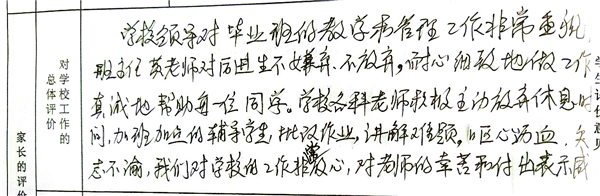 学校领导对毕业班的教学和管理工作非常重视
班主任 英老师对后进生不嫌弃 不放弃,耐心细致地做工作
真诚地帮助每一位同学。学校各科老师积极主动放弃休息时
间,加班加点的辅导学生,批改作业,讲解难题,呕心沥血,矢
志不渝,我们对学校的工作非常放心,对老师的辛苦和付出表示感
对学校工作的
总体评价
家长的评价